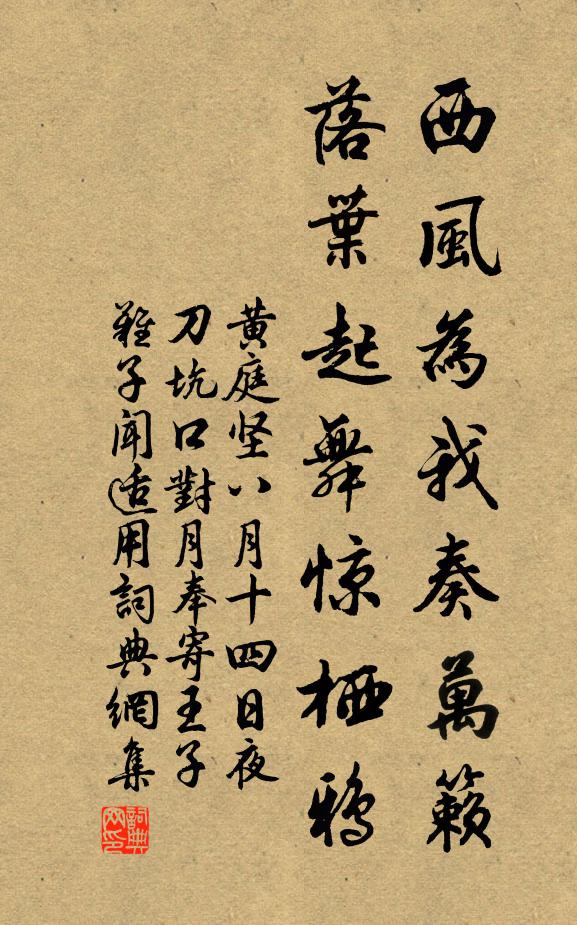 西風為我奏萬籟
落葉起舞惊栖鴉
黄庭坚八月十四日夜
刀坑口對月奉寄王子
難子聞适用詞典網集
詞典
网印